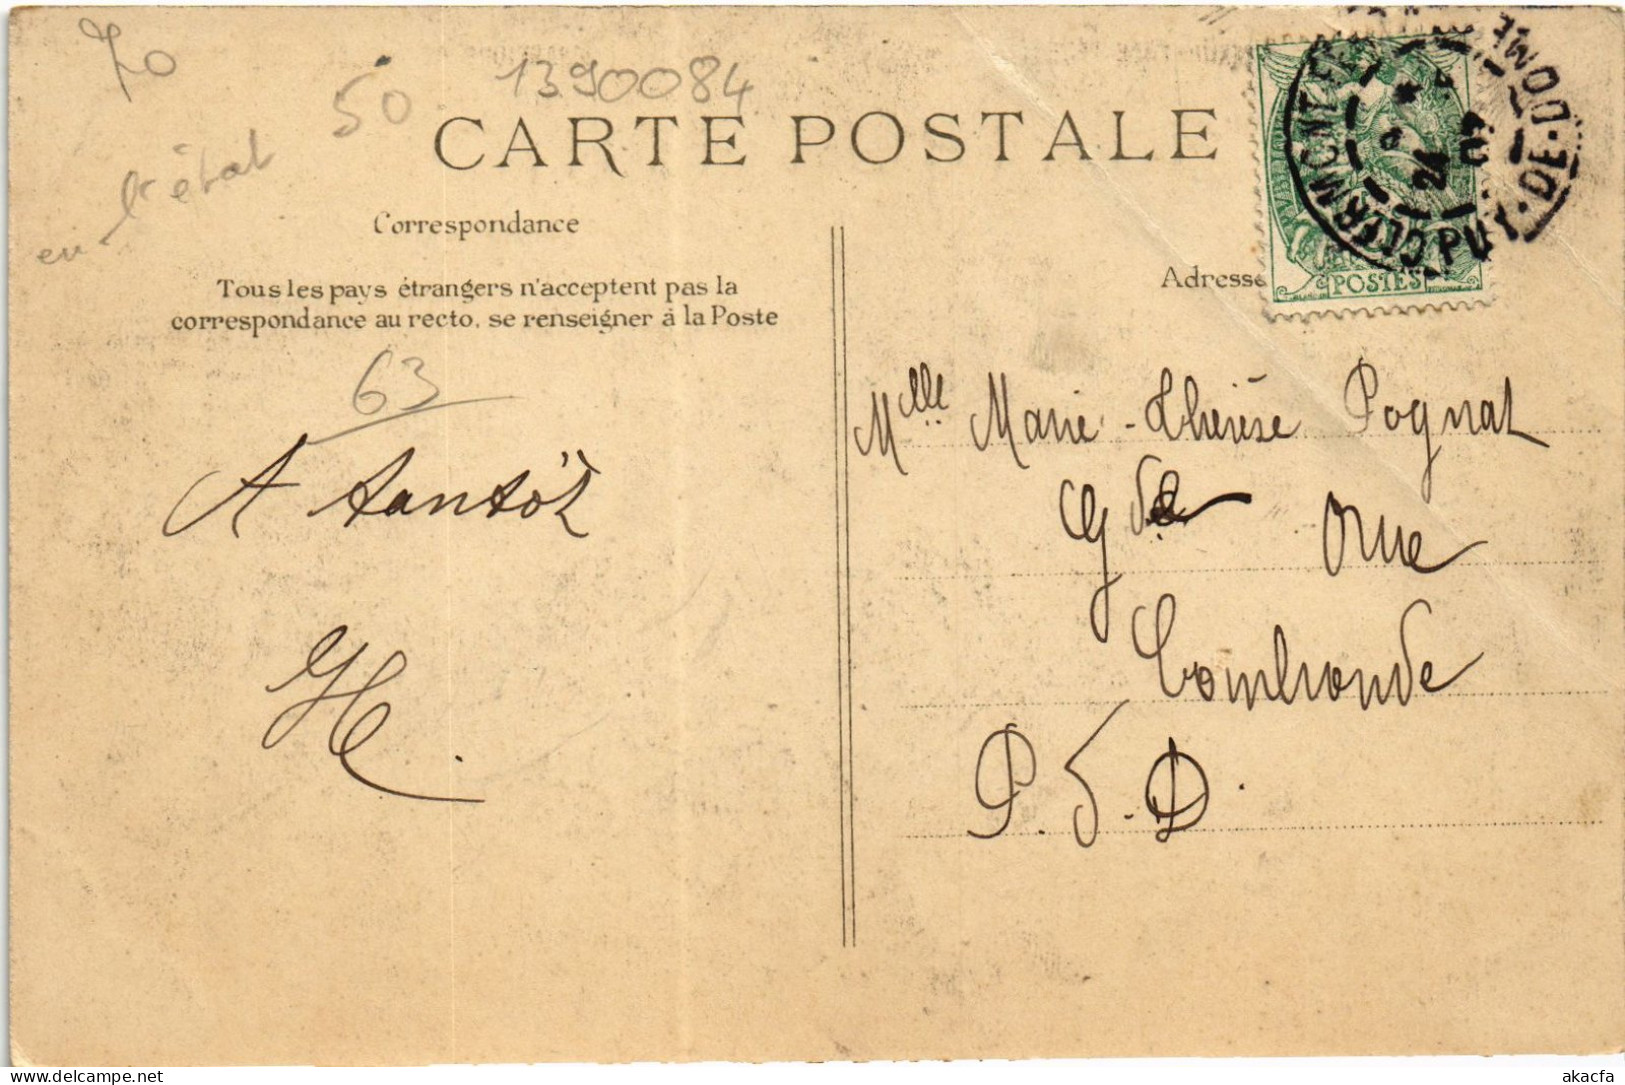 70
50
1390084
en l'état
CARTE POSTALE
Correspondance
Tous les pays étrangers n'acceptent pas la
correspondance au recto, se renseigner à la Poste
63
A tantôt
Adresse
POSTES
CLERMONT-FD PUY-DE-DOME
24
Mlle Marie-Thérèse Pognat
Gde rue
Combronde
P. D. D.
akacfa